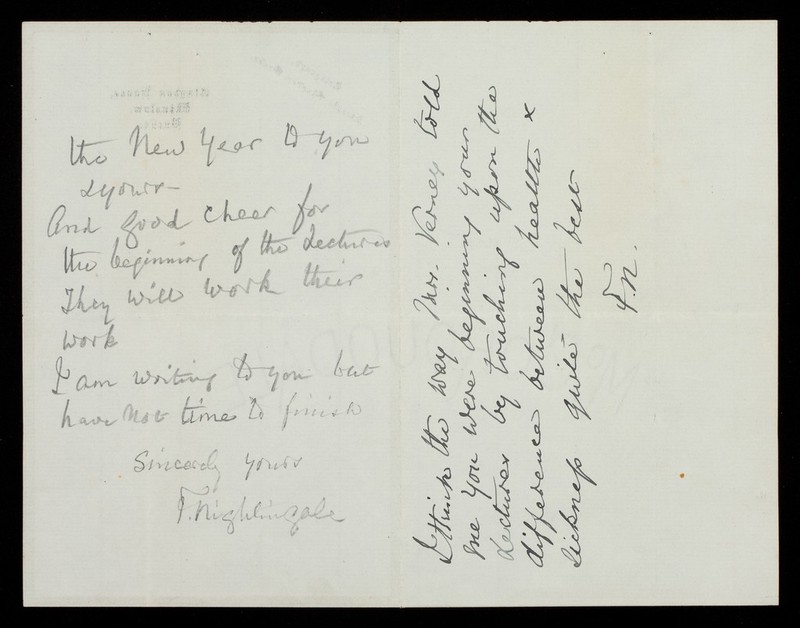 the New Year to you
& yours -
And good cheer for
the beginning of the Lectures
They will work their
work
I am writing to you but
have not time to finish
Sincerely yours
F. Nightingale
I think the way Mrs. Verney told
me you were beginning your
Lectures by touching upon the
difference between health &
Sickness quite the best
F.N.